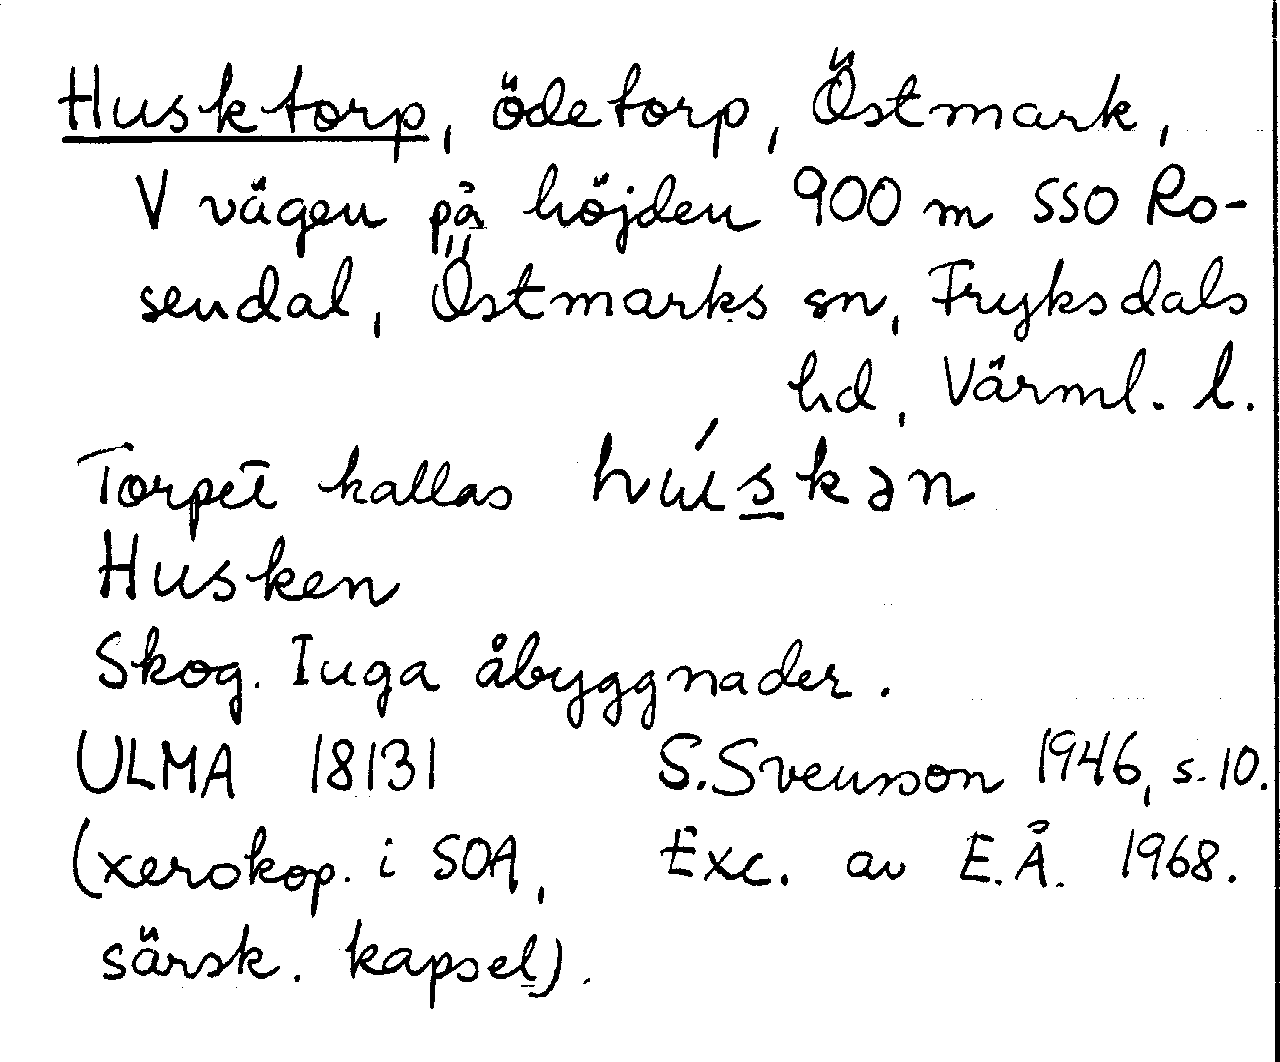 Husktorp, ödetorp, Östmark,
V vägen på höjden 900 m SSO Ro-
sendal, Östmarks sn, Fryksdals
hd, Värml. l.
Torpet kallas húskən
Husken
Skog. Inga åbyggnader.
ULMA 18131 S. Svensson 1946, s. 10.
(xerokop. i SOA, Exc. av E.Å. 1968.
särsk. kapsel).